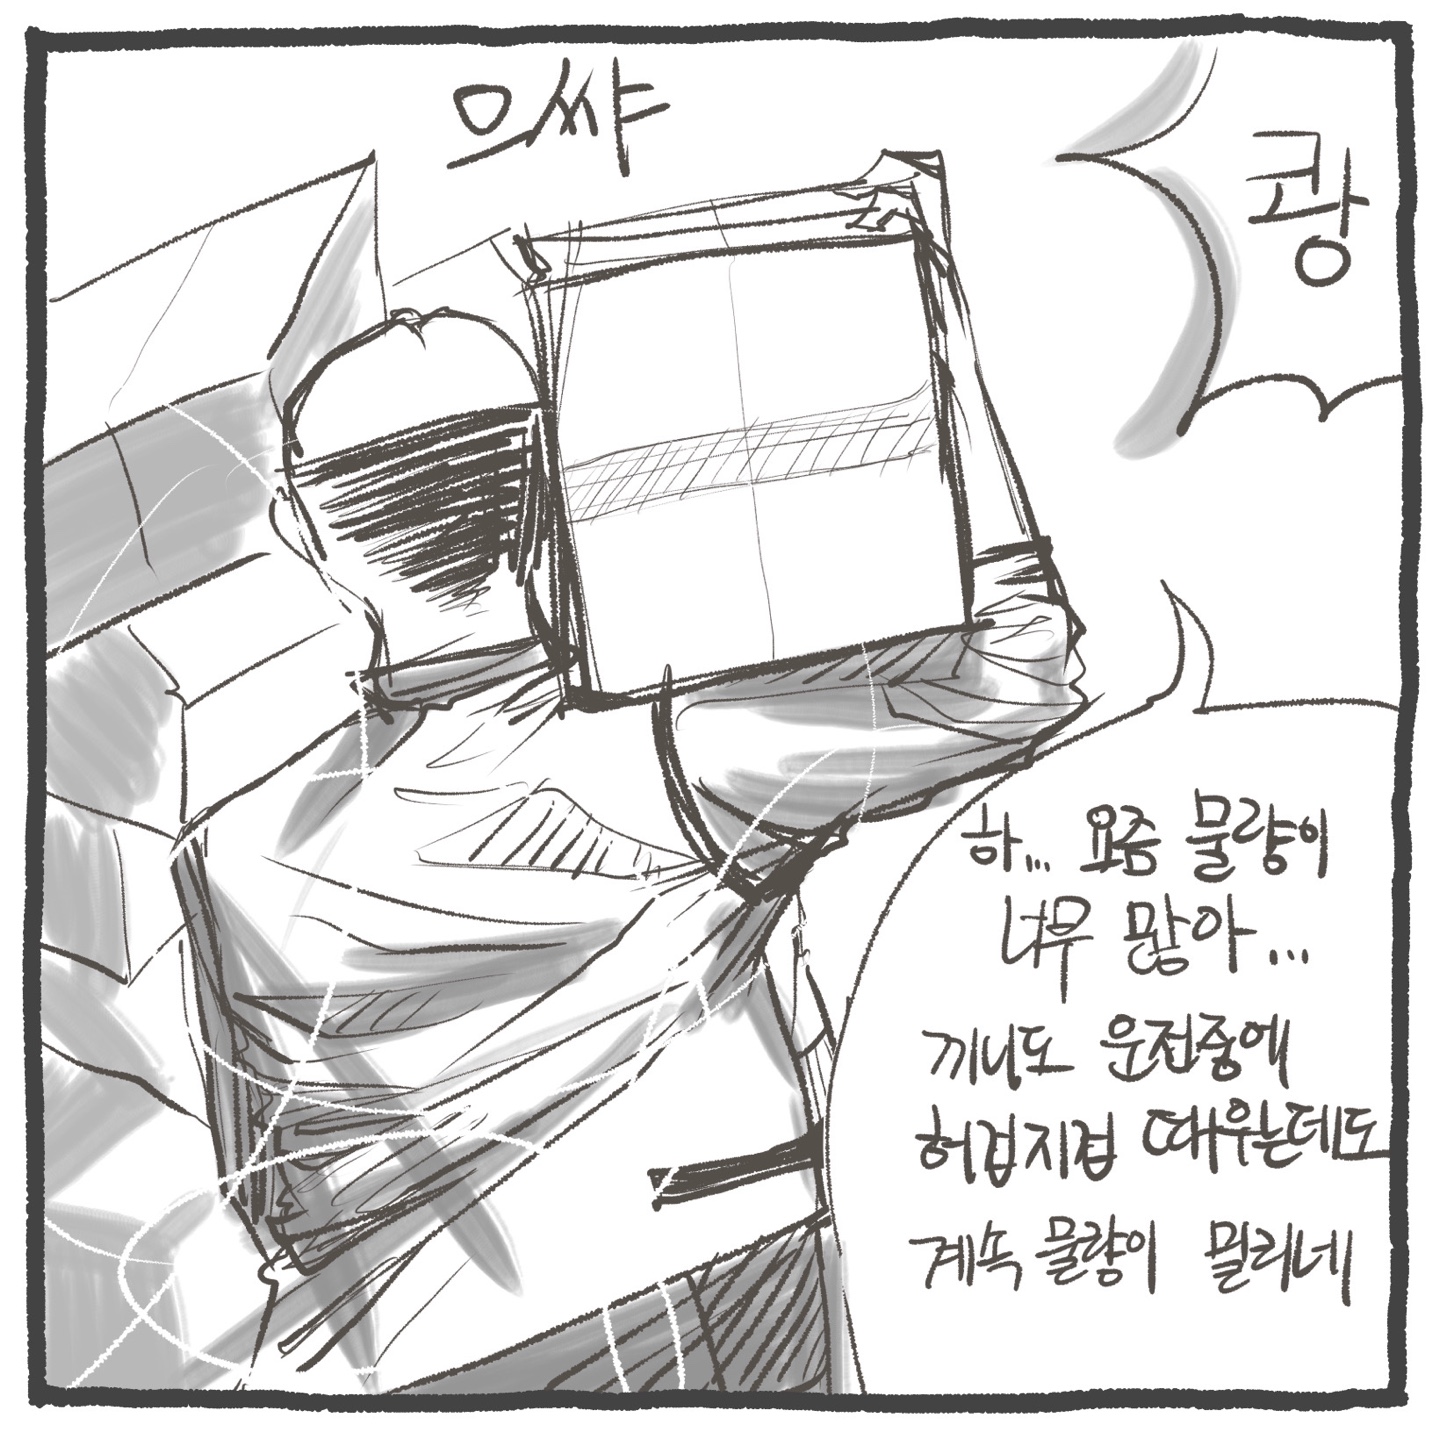 으쌰
쾅
하... 요즘 물량이
너무 많아...
끼니도 운전중에
허겁지겁 때우는데도
계속 물량이 밀리네